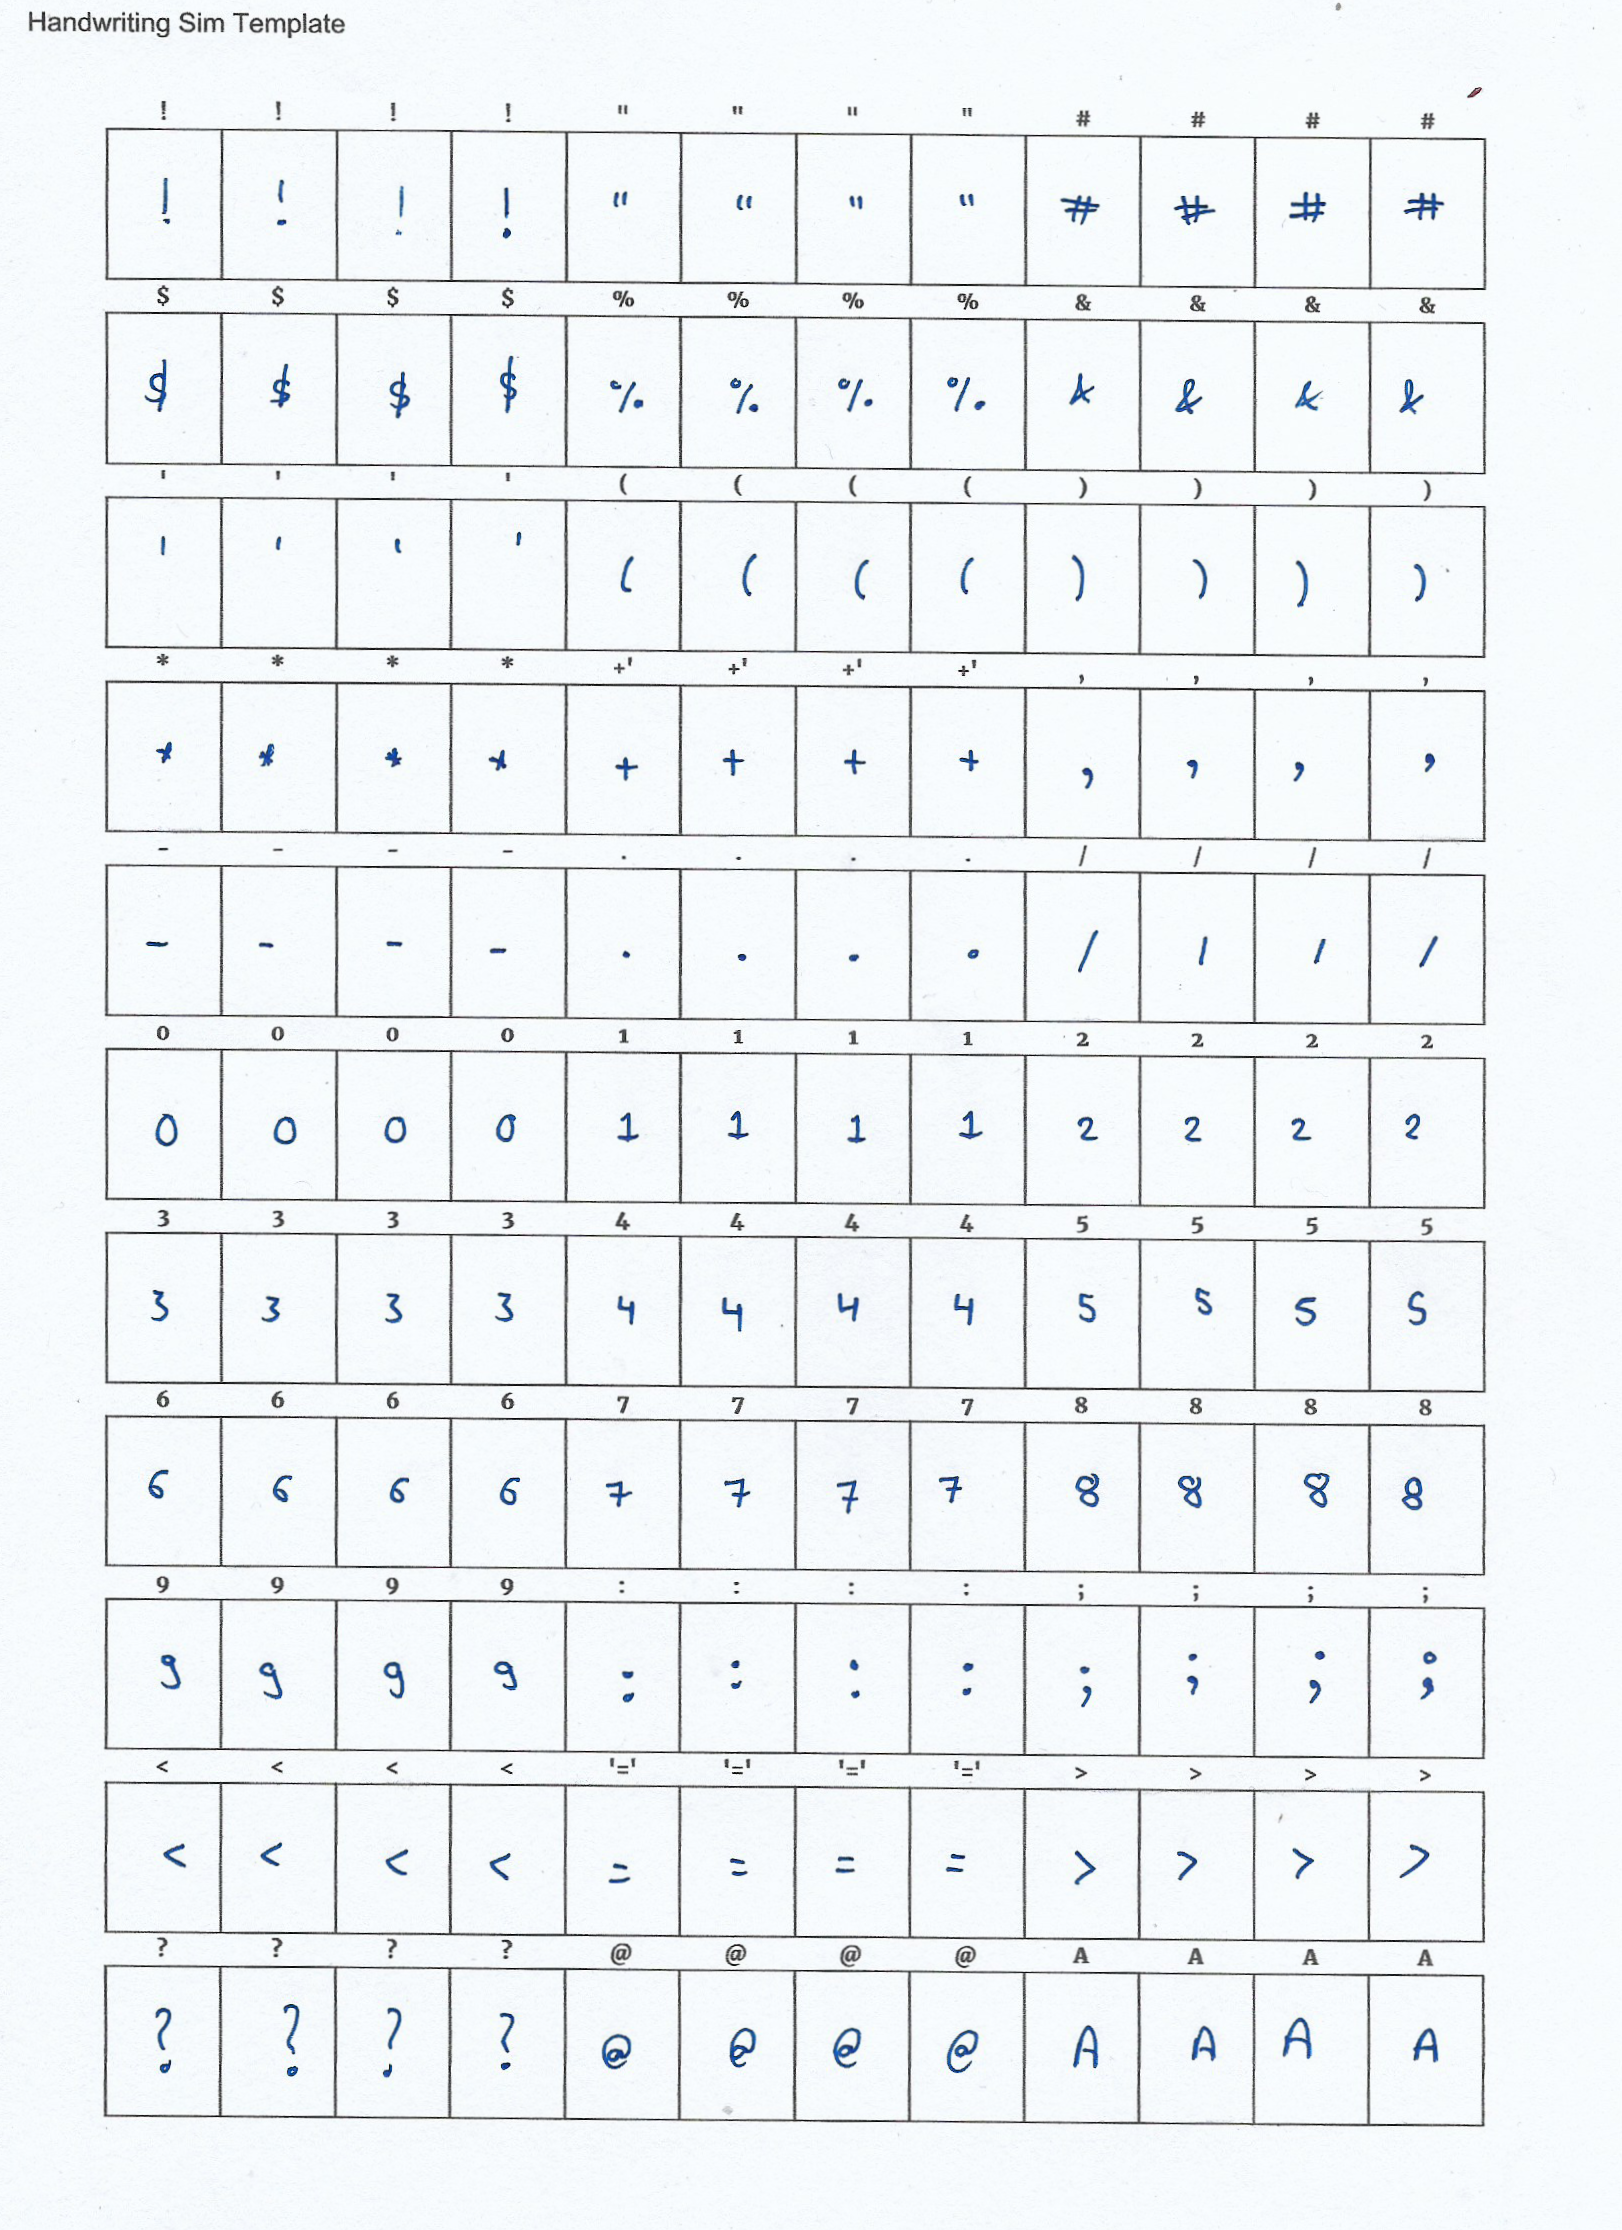 Handwriting Sim Template
! ! ! ! " " " " # # # #
! ! ! ! " " " " # # # #
$ $ $ $ % % % % & & & &
$ $ $ $ % % % % & & & &
' ' ' ' ( ( ( ( ) ) ) )
' ' ' ' ( ( ( ( ) ) ) )
* * * * +' +' +' +' , , , ,
* * * * + + + + , , , ,
- - - - . . . . / / / /
- - - - . . . . / / / /
0 0 0 0 1 1 1 1 2 2 2 2
0 0 0 0 1 1 1 1 2 2 2 2
3 3 3 3 4 4 4 4 5 5 5 5
3 3 3 3 4 4 4 4 5 5 5 5
6 6 6 6 7 7 7 7 8 8 8 8
6 6 6 6 7 7 7 7 8 8 8 8
9 9 9 9 : : : : ; ; ; ;
9 9 9 9 : : : : ; ; ; ;
< < < < '=' '=' '=' '=' > > > >
< < < < = = = = > > > >
? ? ? ? @ @ @ @ A A A A
? ? ? ? @ @ @ @ A A A A